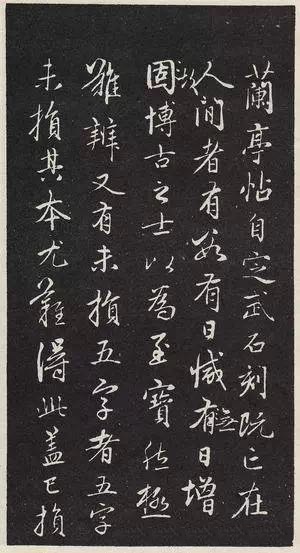 蘭亭帖自定武石刻既亡在
人間者有數有日減有無日增
固故博古之士以為至寶然極
難辨又有未損五字者五字
未損其本尤難得此蓋已損